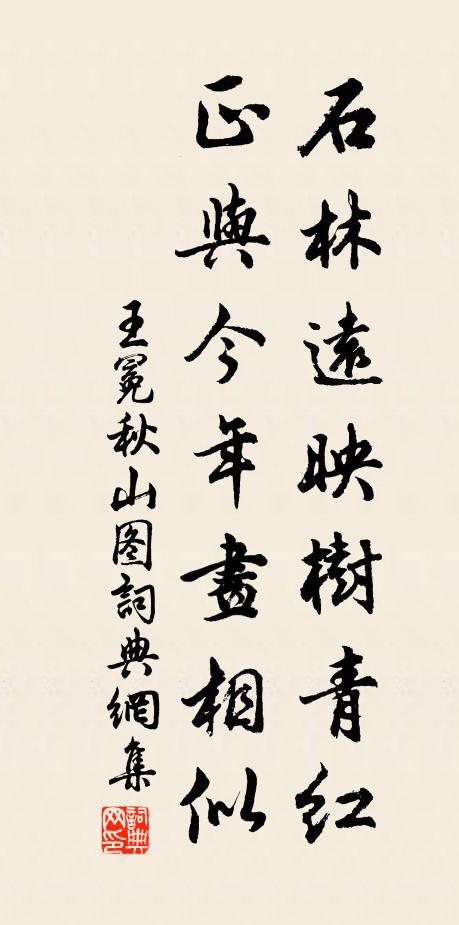 石林遠映樹青紅
正與今年畫相似
王冕秋山图詞典網集
詞典網印